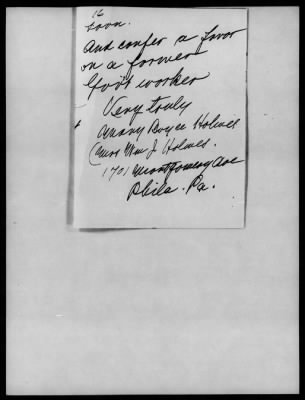 16
soon.
and confer a favor
on a former
Gov't worker
Very truly
Boyce Holmes
(Mrs Wm J. Holmes.
1701 Montgomery Ave
Phila. Pa.